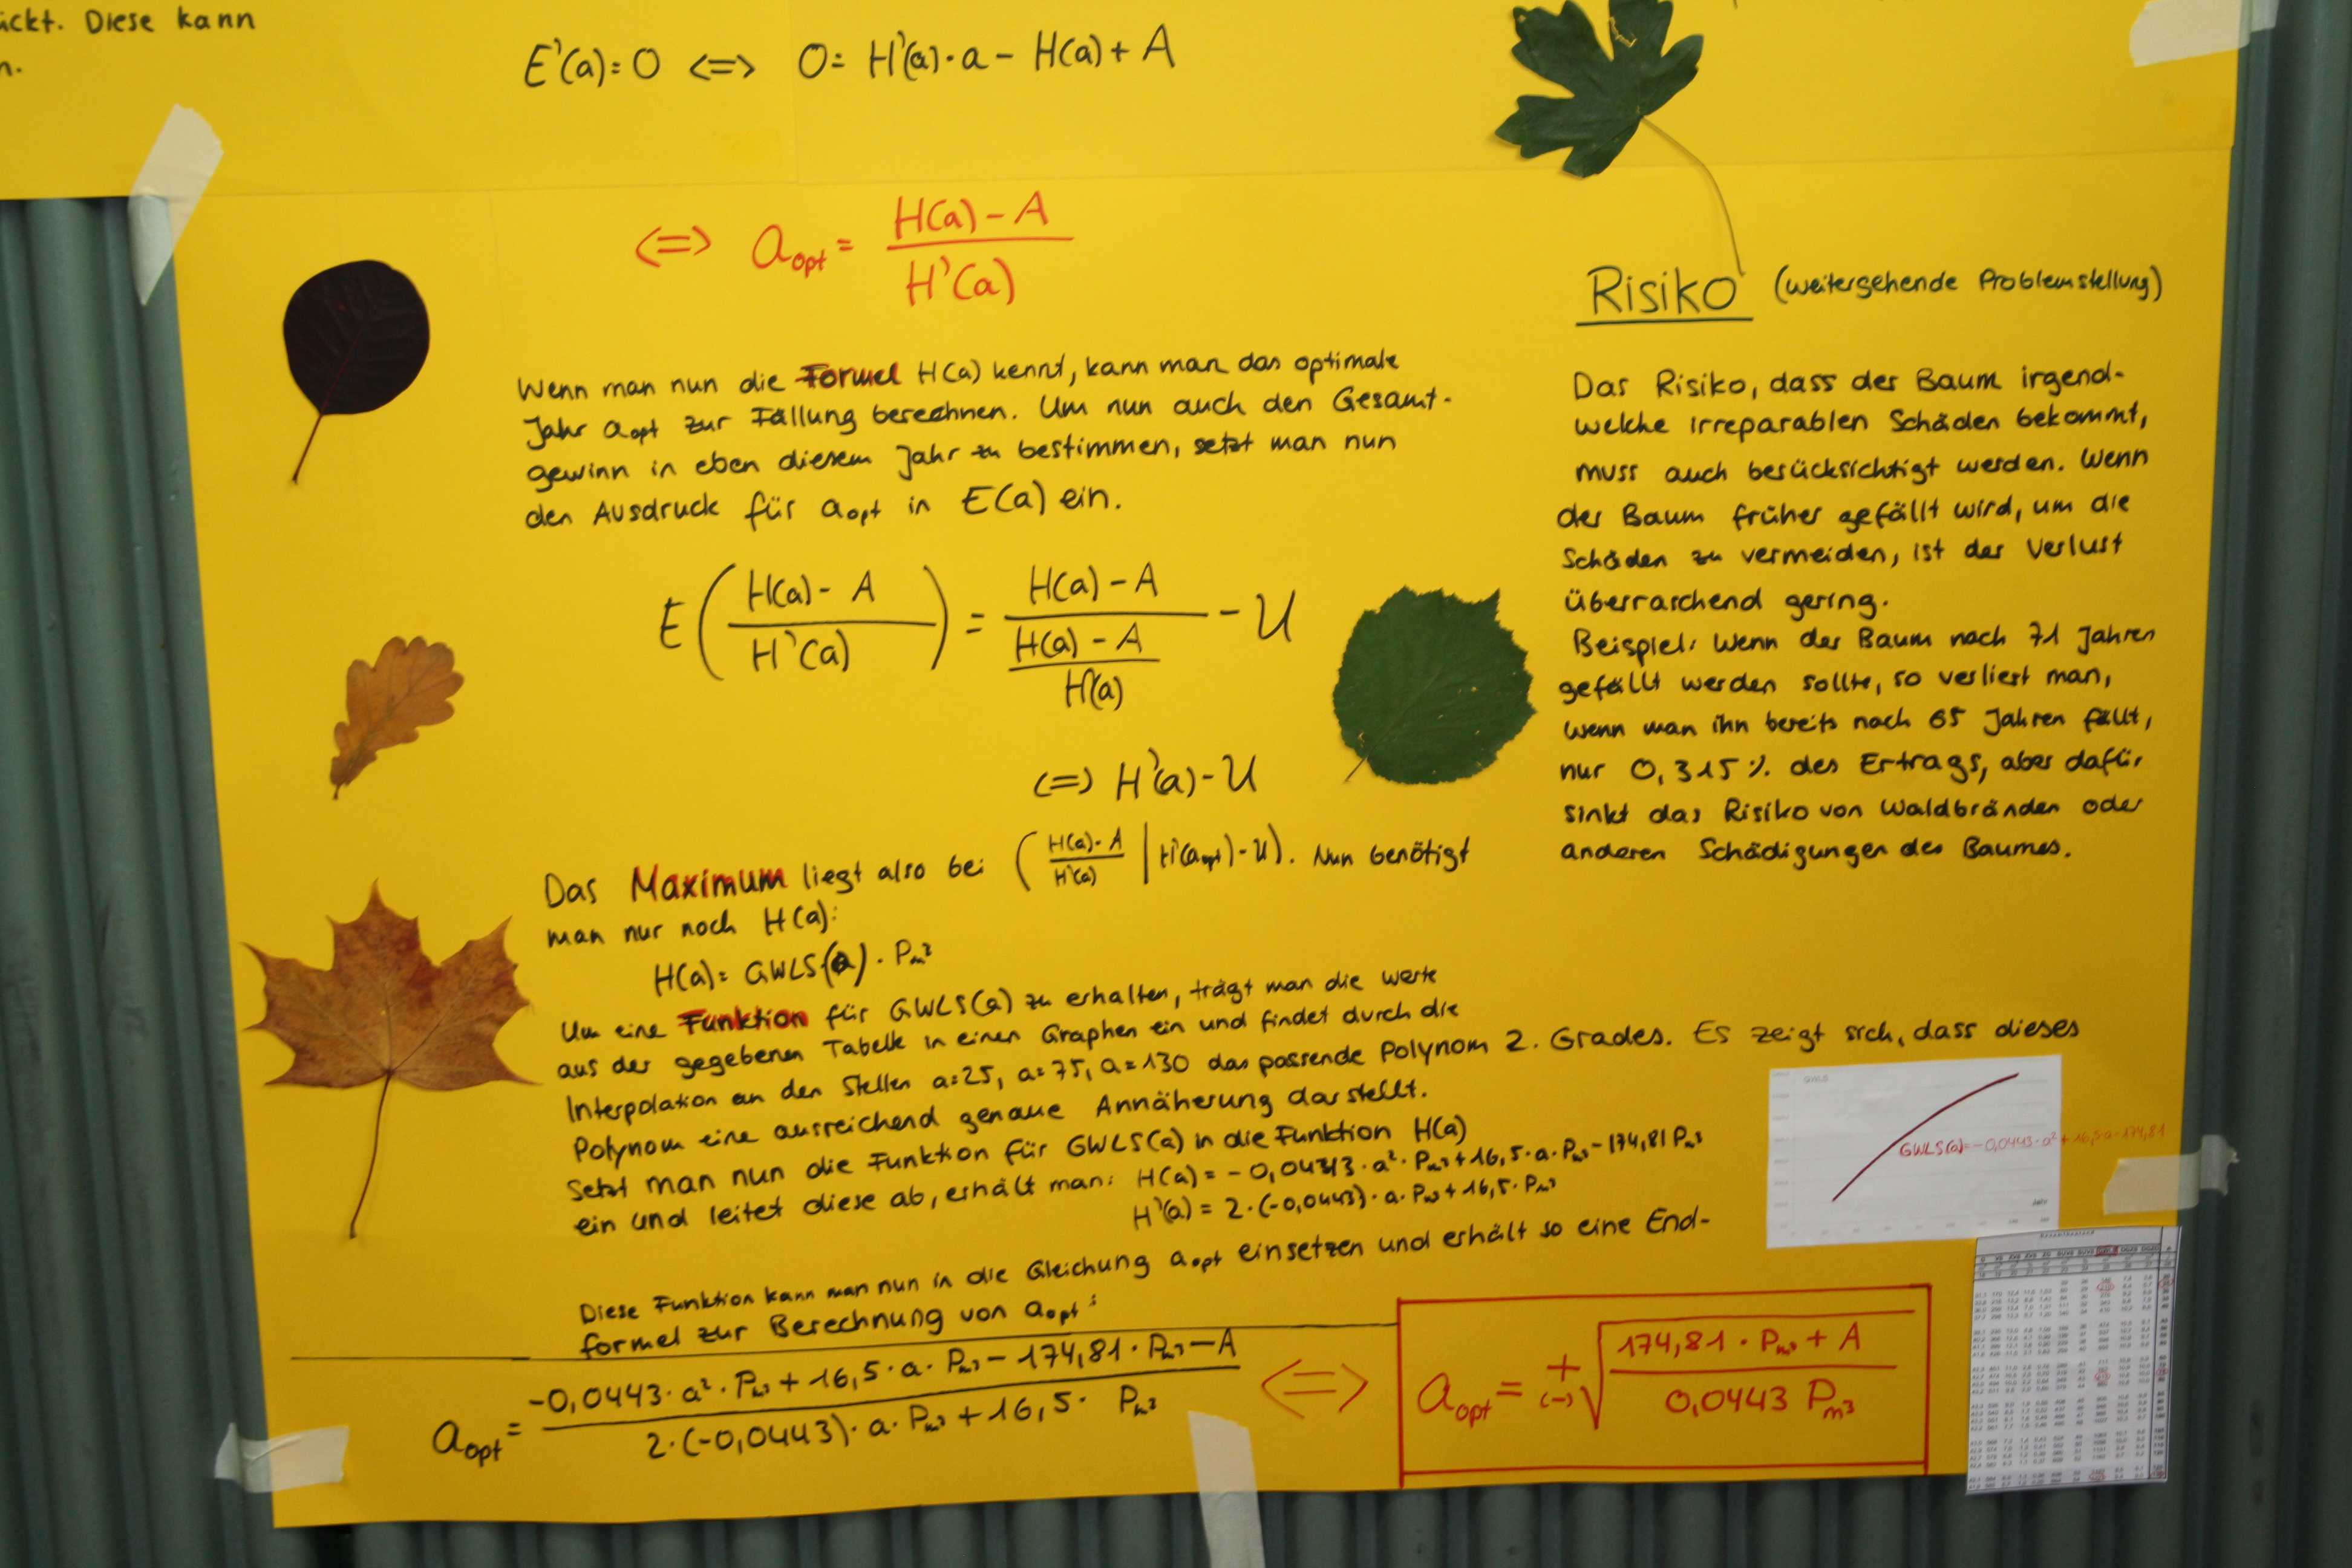 ückt. Diese kann
n.
E'(a)=0 <=> 0= H'(a)·a - H(a) + A
<=> a_opt = (H(a) - A) / H'(a)
Wenn man nun die Formel H(a) kennt, kann man das optimale
Jahr a_opt zur Fällung berechnen. Um nun auch den Gesamt-
gewinn in eben diesem Jahr zu bestimmen, setzt man nun
den Ausdruck für a_opt in E(a) ein.
E((H(a) - A) / H'(a)) = (H(a) - A) / ((H(a) - A) / H'(a)) - U
<=> H'(a) - U
Das Maximum liegt also bei ((H(a) - A) / H'(a) | H'(a_opt) - U). Nun benötigt
man nur noch H(a):
H(a) = GWLS(a) · P_m³
Um eine Funktion für GWLS(a) zu erhalten, trägt man die Werte
aus der gegebenen Tabelle in einen Graphen ein und findet durch die
Interpolation an den Stellen a=25, a=75, a=130 das passende Polynom 2. Grades. Es zeigt sich, dass dieses
Polynom eine ausreichend genaue Annäherung darstellt.
Setzt man nun die Funktion für GWLS(a) in die Funktion H(a)
ein und leitet diese ab, erhält man: H(a) = -0,0443·a²·P_m³ + 16,5·a·P_m³ - 174,81 P_m³
H'(a) = 2·(-0,0443)·a·P_m³ + 16,5·P_m³
Diese Funktion kann man nun in die Gleichung a_opt einsetzen und erhält so eine End-
formel zur Berechnung von a_opt:
a_opt = (-0,0443·a²·P_m³ + 16,5·a·P_m³ - 174,81·P_m³ - A) / (2·(-0,0443)·a·P_m³ + 16,5·P_m³) <=> a_opt = +(-) √((174,81·P_m³ + A) / (0,0443 P_m³))
Risiko (weitergehende Problemstellung)
Das Risiko, dass der Baum irgend-
welche irreparablen Schäden bekommt,
muss auch berücksichtigt werden. Wenn
der Baum früher gefällt wird, um die
Schäden zu vermeiden, ist der Verlust
überraschend gering.
Beispiel: Wenn der Baum nach 71 Jahren
gefällt werden sollte, so verliert man,
wenn man ihn bereits nach 65 Jahren fällt,
nur 0,315% des Ertrags, aber dafür
sinkt das Risiko von Waldbränden oder
anderen Schädigungen des Baumes.
GWLS
GWLS(a)=-0,0443·a²+16,5·a-174,81
Jahr